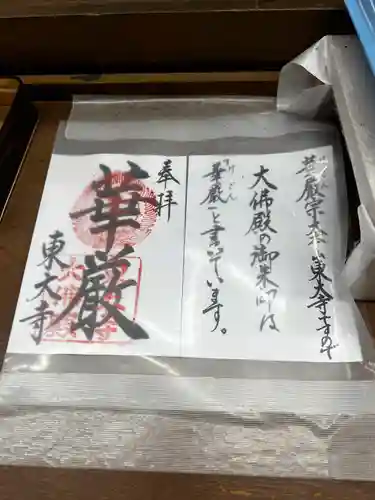 奉拝
華厳
東大寺
華厳宗大本山東大寺ですので
大佛殿の御朱印は
華厳と書いています。